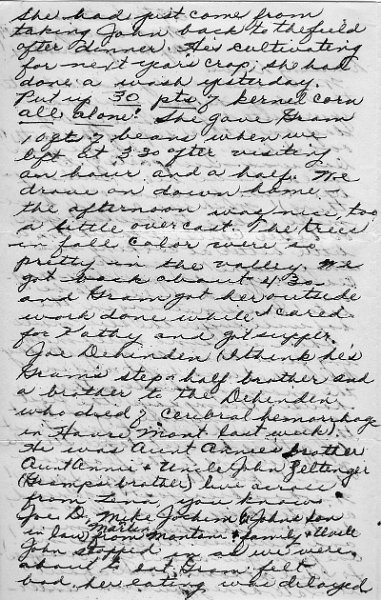 she had just come from
taking John back to the field
after dinner. He's cultivating
for next years crop; she had
done a wash yesterday.
Put up 30 pts of kernel corn
all alone! She gave Gram
10 qts of beans when we
left at 3:30 after visiting
an hour and a half. We
drove on down home
the afternoon was nice, too
a little overcast. The trees
in fall color were so
pretty in the valley. We
got back about 4:30
and Gram got her outside
work done while I cared
for Kathy and got supper.
Joe Dehinden (I think he's
Gram's step or half brother and
a brother to the Dehinden
who died of cerebral hemorrhage
in Havre Mont last week).
He was Aunt Annie's brother
Aunt Annie & Uncle John Zeltinger
(Gramp's brother) live across
from Lena you know.
Joe D., Mike Jochim (Johns son
in law) Martin from Montana & family & Uncle
John stopped in as we were
about to eat. Gram felt
bad her eating was delayed